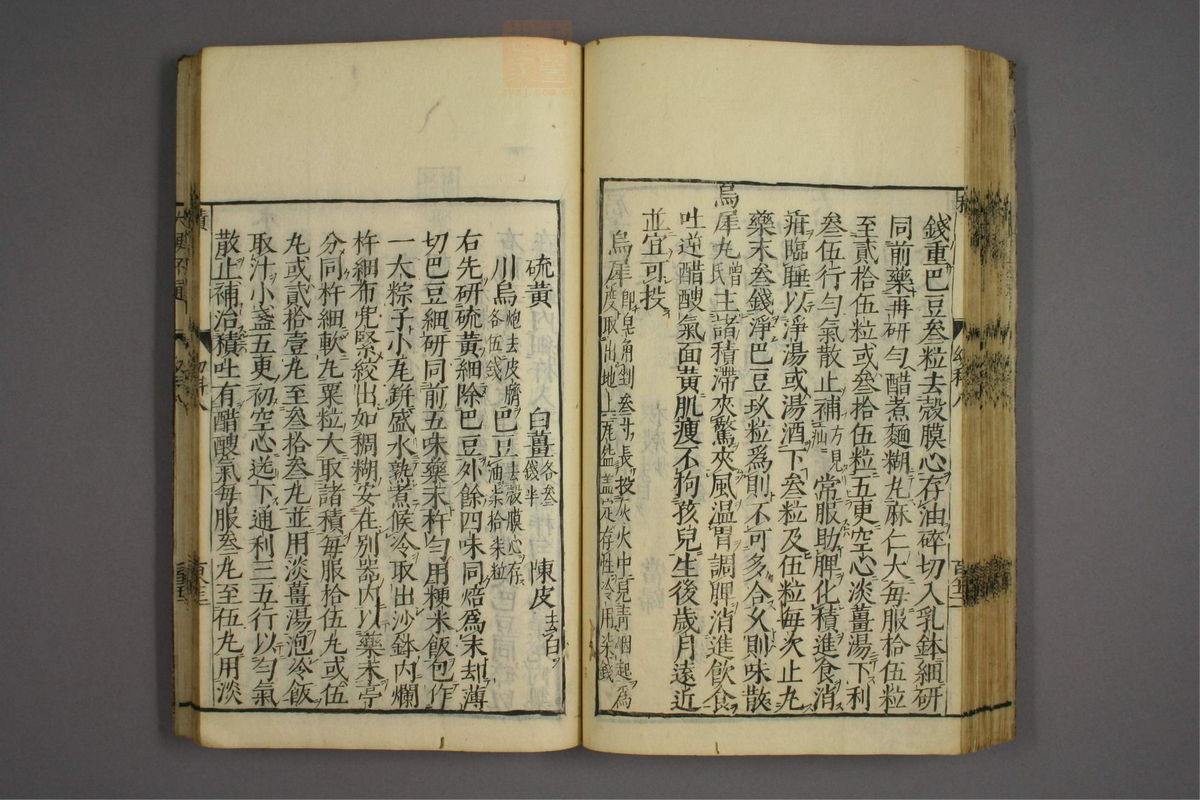 錢重巴豆叄粒去殻膜心存油碎切入乳鉢細研
同前藥再研勻醋煮麵糊丸麻仁大每服拾伍粒
至貳拾伍粒或叄拾伍粒五更空心淡薑湯下利
叄伍行勻氣散止補方見疝常服助脾化積進食消
疳臨睡以淨湯或湯酒下叄粒及伍粒每次止丸
藥末叄錢淨巴豆玖粒爲則不可多合久則味散
烏犀丸曾氏主諸積滯夾驚夾風温胃調脾消進飲食
吐逆醋醙氣面黃肌瘦不拘孩兒生後歲月遠近
並宜可投
烏犀即皂角剉叄寸長投灰火中見青烟起爲度取出地上瓦盆蓋定存性冷用柒錢
硫黃 白薑各叄錢半 陳皮去白
川烏炮去皮臍各伍錢 巴豆去殻膜心存油柒拾柒粒
右先研硫黃細除巴豆外餘四味同焙爲末却薄
切巴豆細研同前五味藥末杵勻用粳米飯包作
一大粽子小瓦缾盛水熟煮候冷取出沙鉢内爛
杵細布兜緊絞出如稠糊安在別器内以藥末亭
分同杵細軟丸粟粒大取諸積每服拾伍丸或伍
丸或貳拾壹丸至叄拾叄丸並用淡薑湯泡冷飯
取汁小盞五更初空心送下通利三五行以勻氣
散止補治積吐有醋醙氣每服叄丸至伍丸用淡